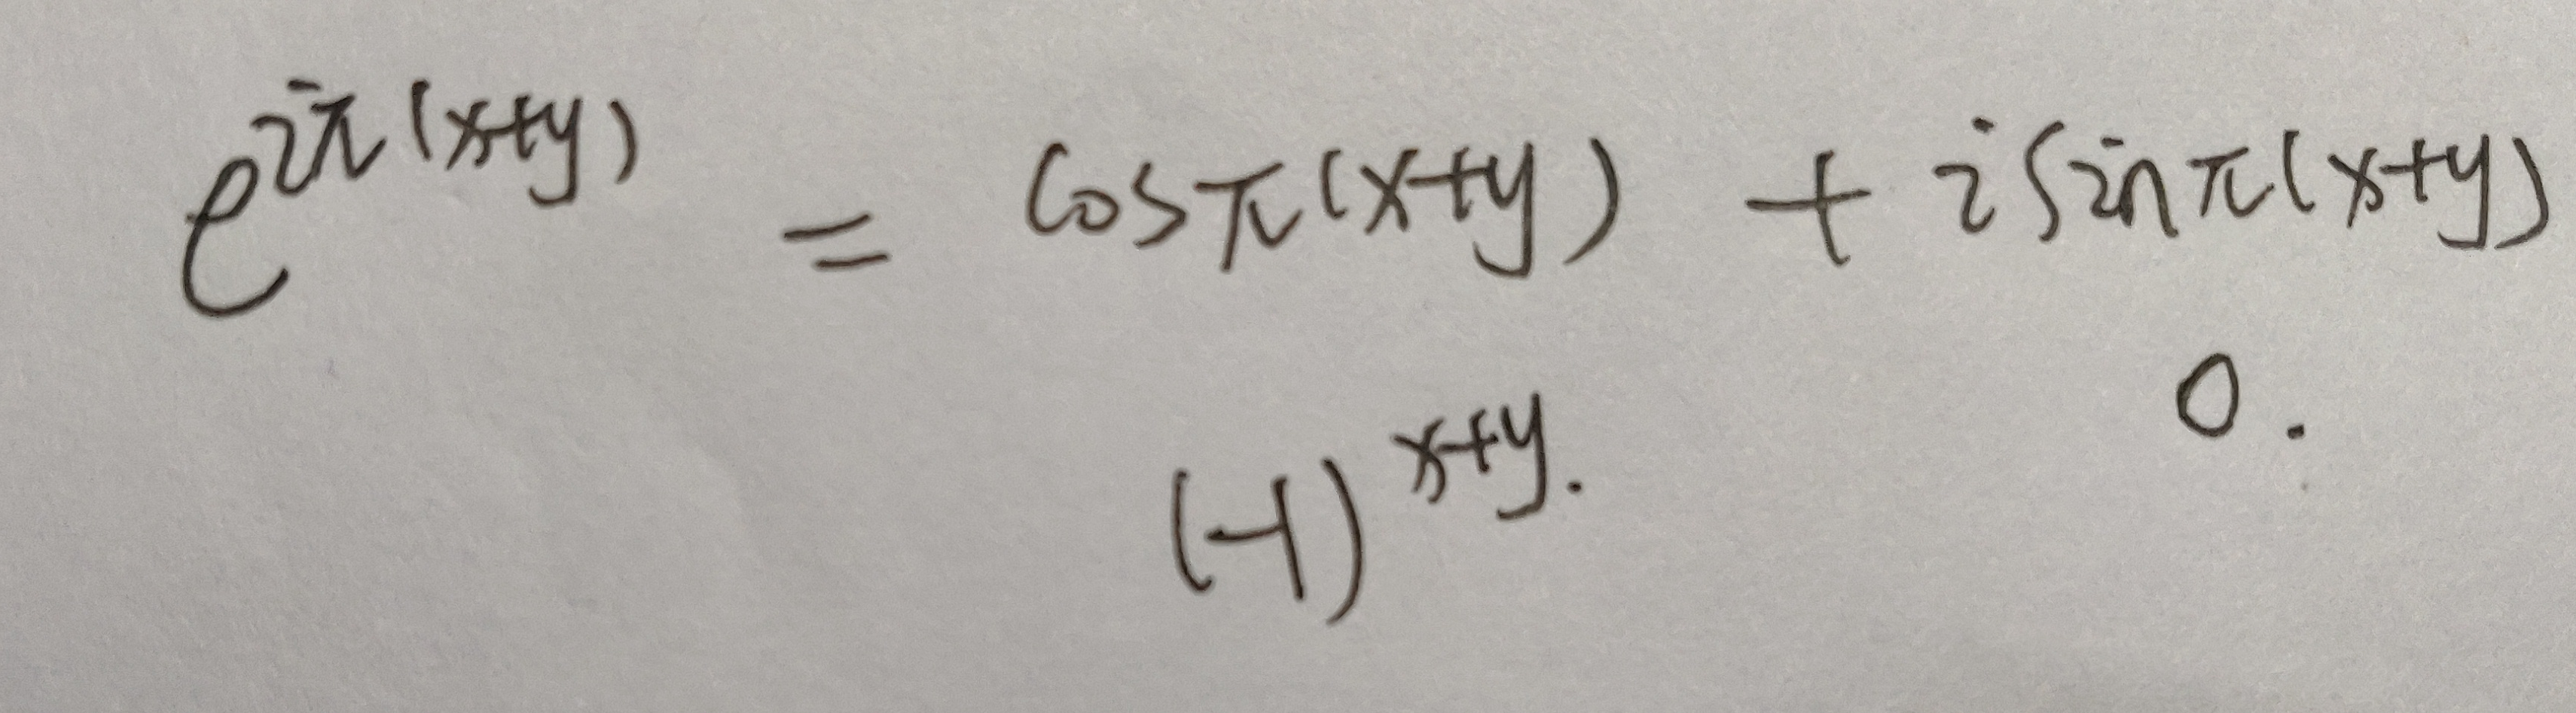 e^{iπ(x+y)} = cosπ(x+y) + i sinπ(x+y)
0.
(-1)^{x+y}.